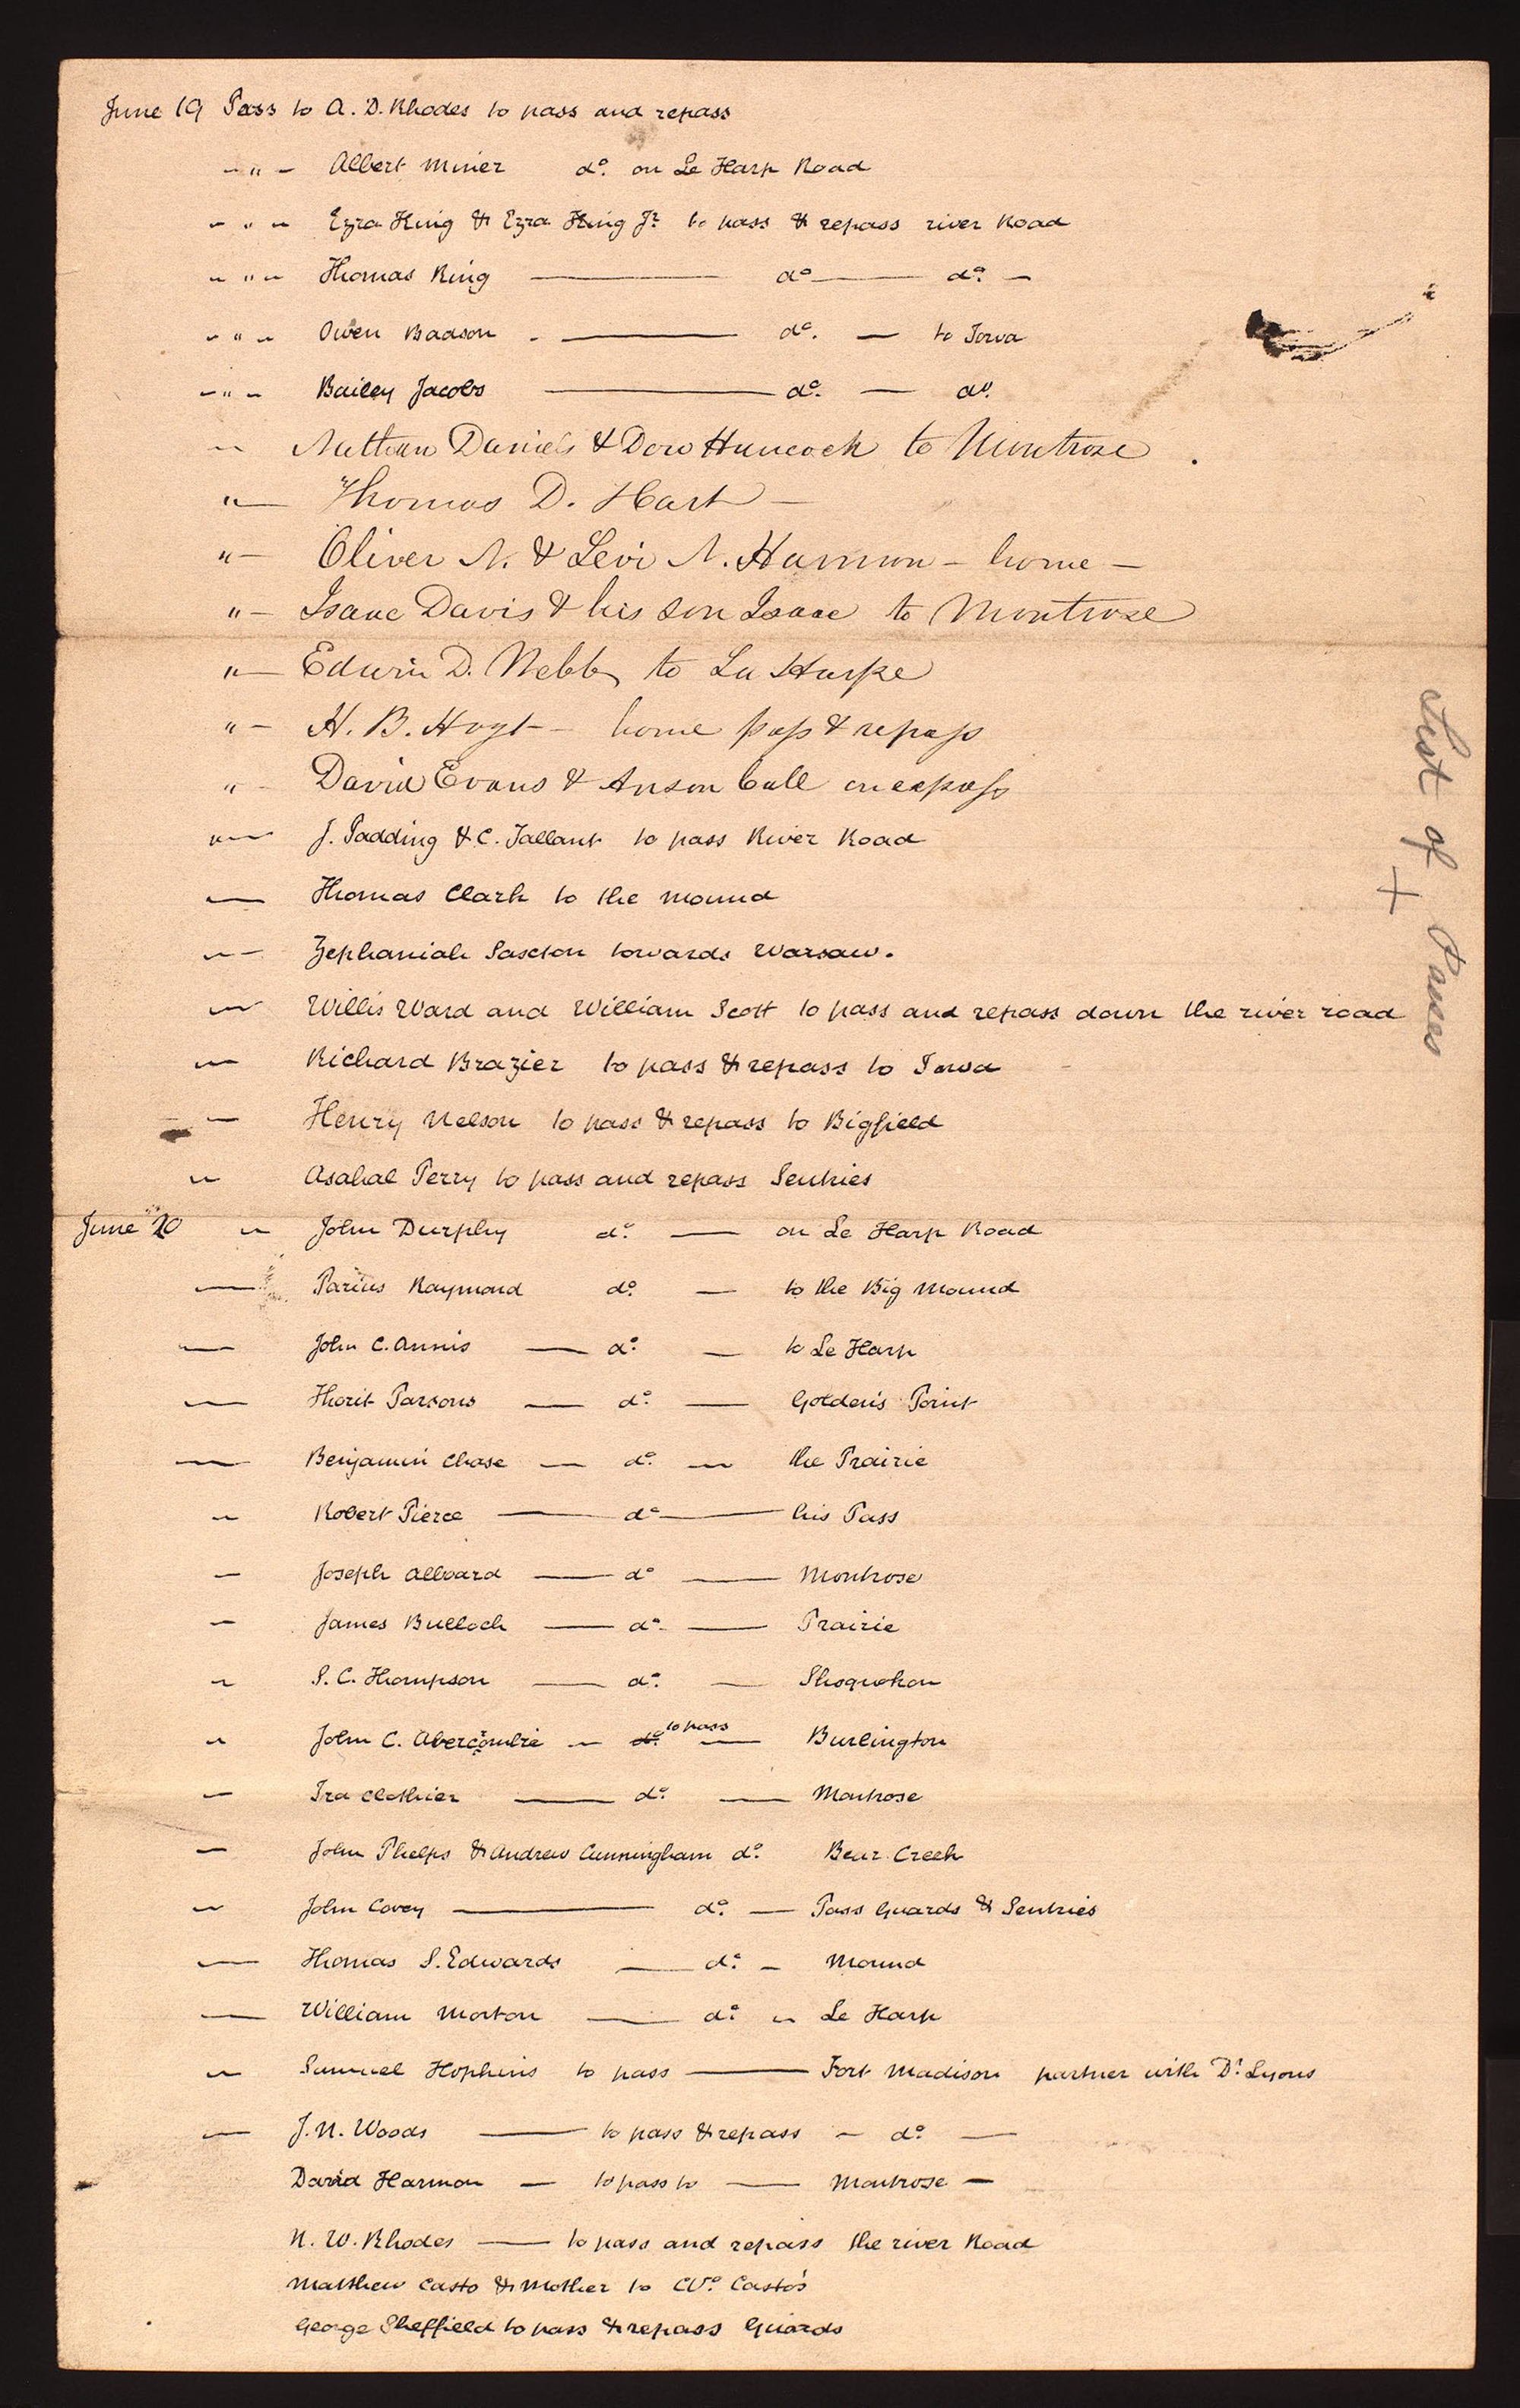 June 19 Pass to A. D. Rhodes to pass and repass
– " – Albert Miner do. on Le Harp Road
– " – Ezra King & Ezra King Jr. to pass & repass river Road
– " – Thomas King — do — do. –
– " – Owen Badson . — do. — to Iowa
– " – Bailey Jacobs — do. — do.
– Nathan Daniels & Dow Hancock to Montrose .
" – Thomas D. Hart –
" – Oliver N. & Levi N. Harmon – home –
" – Isaac Davis & his son Isaac to Montrose
" – Edwin D. Webb, to La Harpe
" – H. B. Hoyt – home pass & repass
" – David Evans & Anson Call
" – J. Padding & C. Tallant to pass River Road
— Thomas Clark to the mound
— Zephaniah towards Warsaw.
— Willis Ward and William Scott to pass and repass down the river road
— Richard Brazier to pass & repass to Iowa
— Henry Nelson to pass & repass to Bigfield
— Asahal Perry to pass and repass Sentries
June 20 — John Durphy do. — on Le Harp Road
— Parius Raymond do. — to the Big Mound
— John C. Annis — do. — to Le Harp
— Thorit Parsons — do. — Golden's Point
— Benjamin Chase — do. — the Prairie
— Robert Pierce — do — his Pass
— Joseph Allvard — do — Montrose
— James Bulloch — do. — Prairie
— S. C. Thompson — do. — Shoquokon
— John C. Abercrombie — do. to pass — Burlington
— Ira Clothier — do. — Montrose
— John Phelps & Andrew Cunningham do. Bear Creek
— John Covey — do. — Pass Guards & Sentries
— Thomas S. Edwards — do. – Mound
— William Morton — do. – Le Harp
— Samuel Hopkins to pass — Fort Madison partner with Dr. Lyons
— J. N. Woods — to pass & repass – do. —
David Harmon — to pass to — Montrose –
N. W. Rhodes — to pass and repass the river Road
Matthew Casto & Mother to Casto's
George Sheffield to pass & repass Guards
List of Passes
+